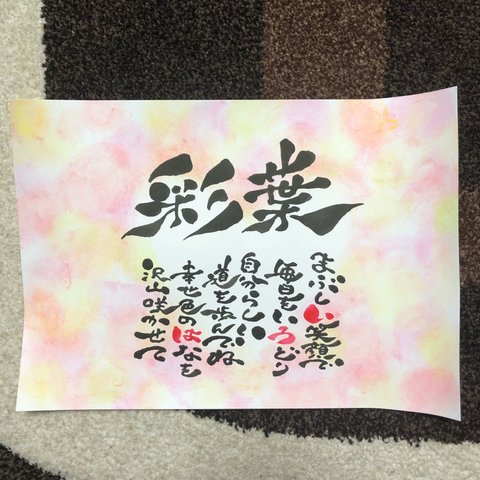 彩葉
まぶしい笑顔で
毎日をいろどり
自分らしい
道を歩んでね
幸せ色のはなを
沢山咲かせて